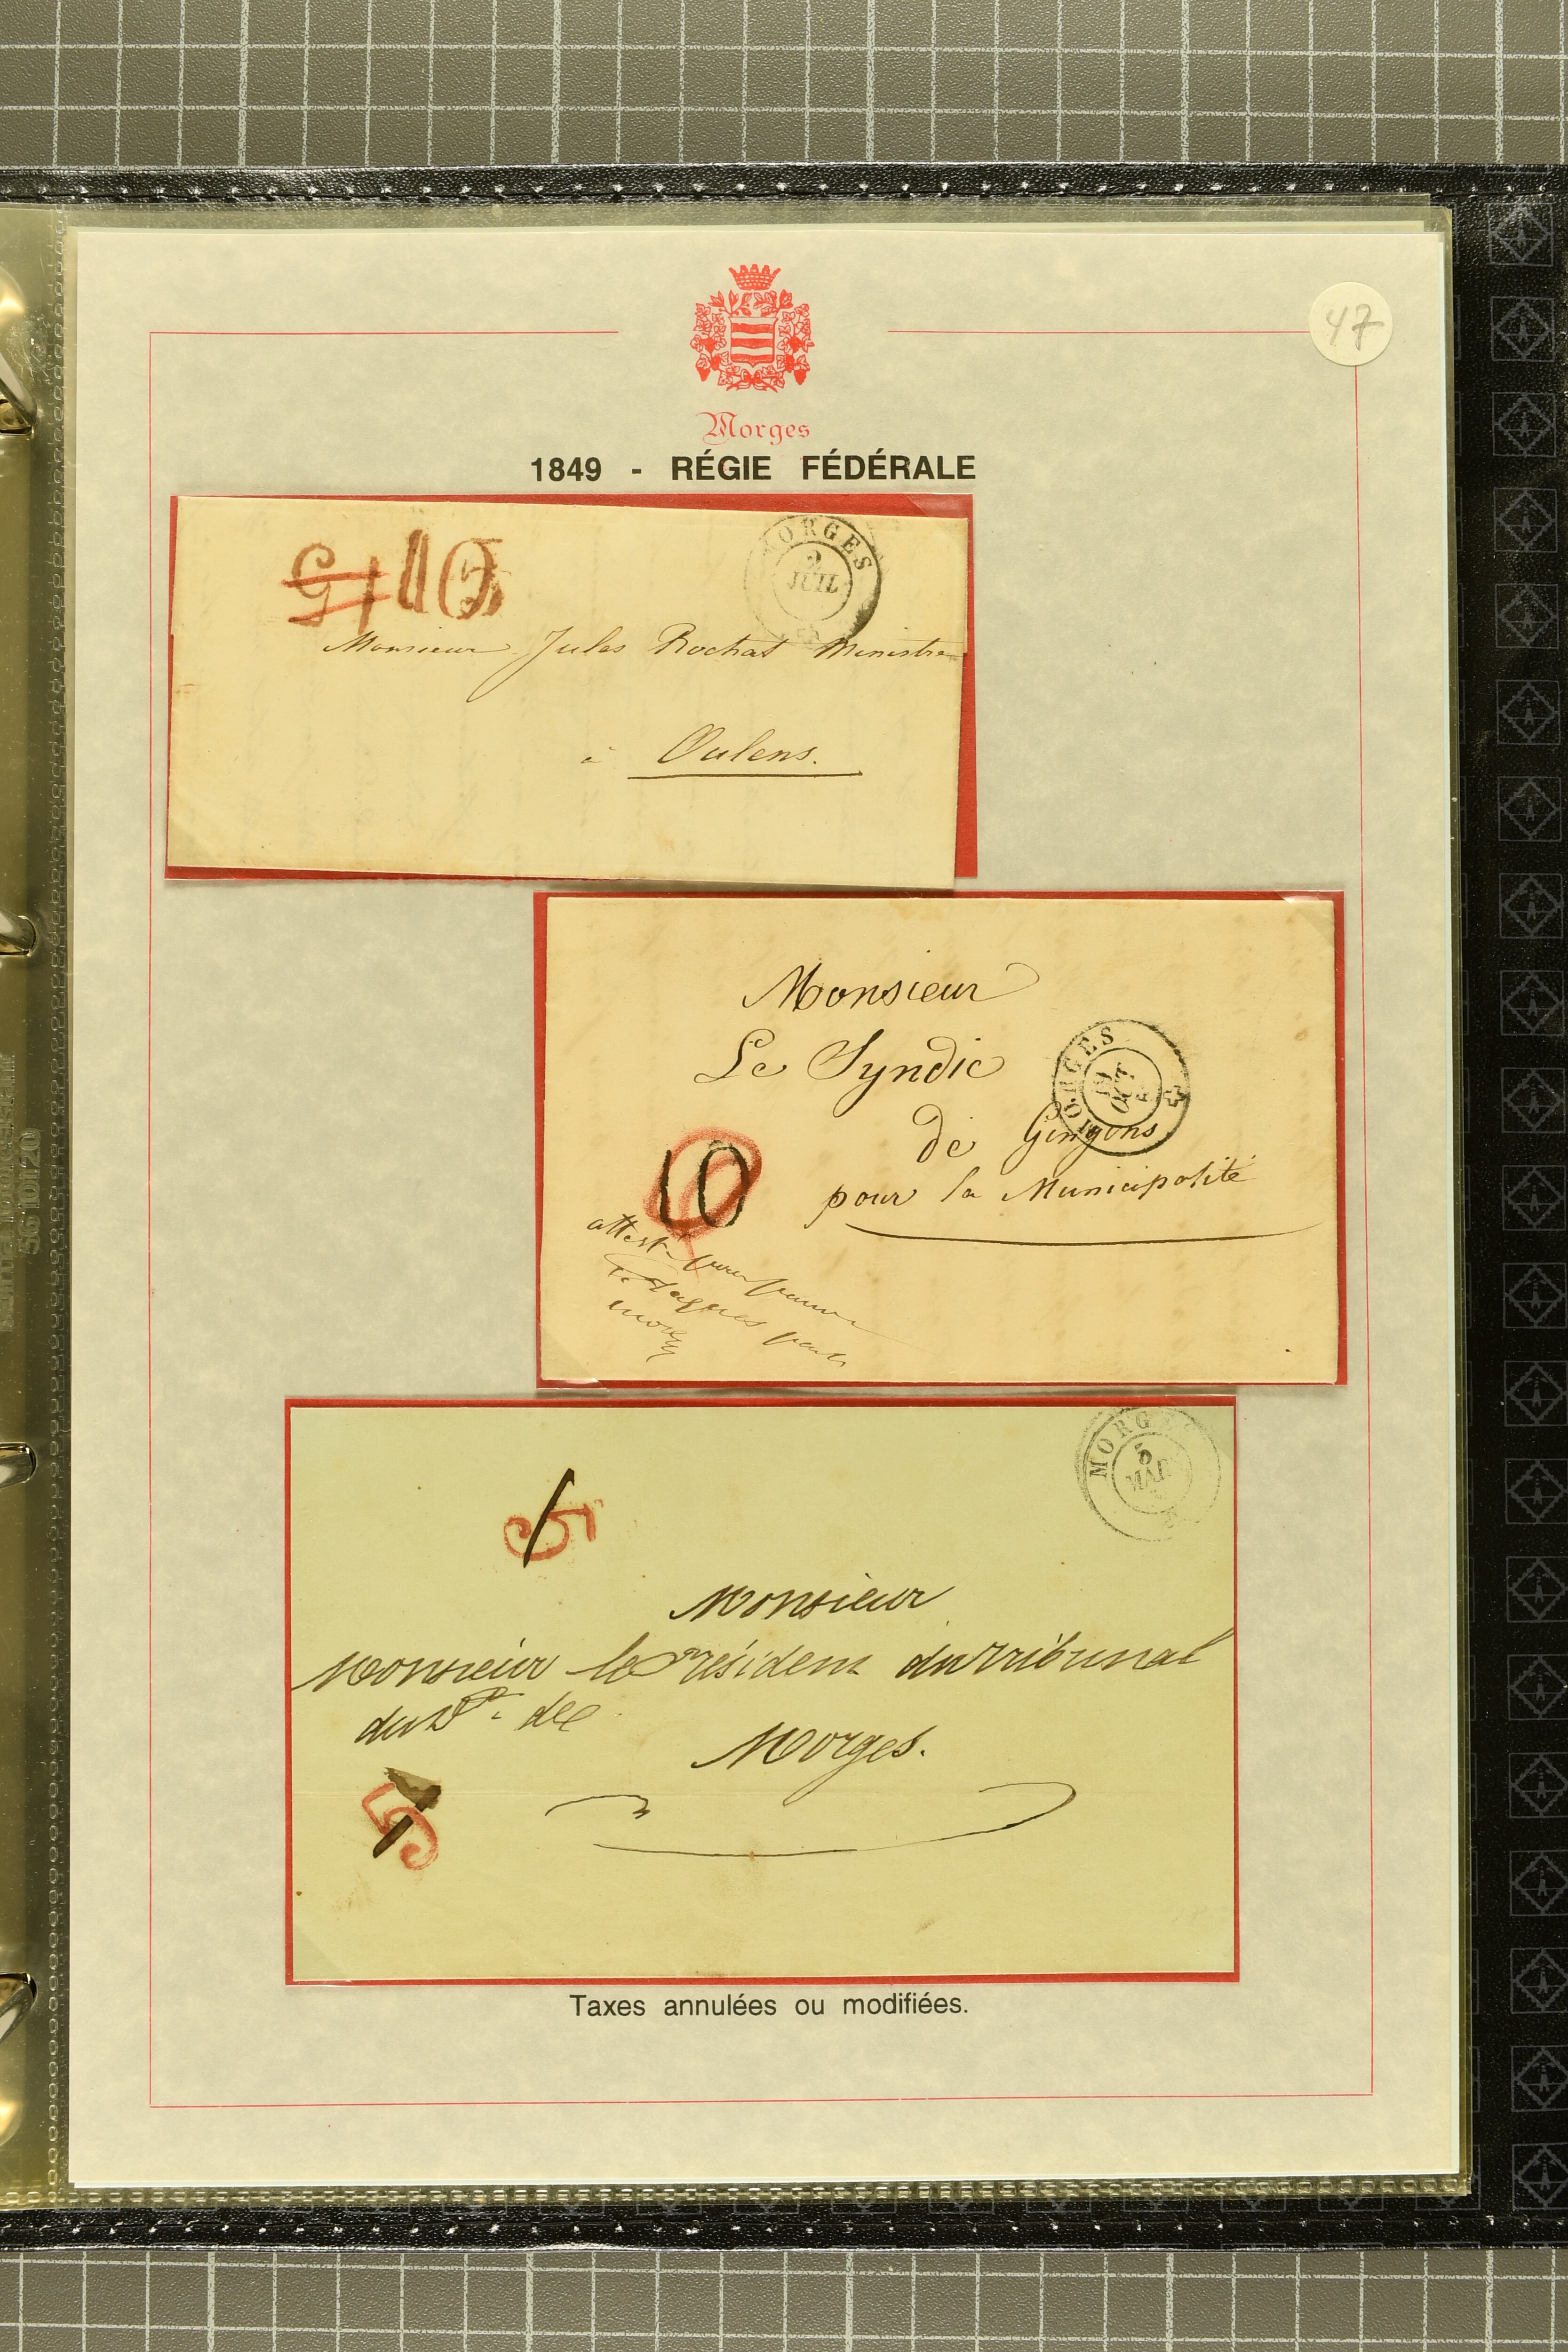 47
Morges
1849 - RÉGIE FÉDÉRALE
10
MORGES
2
JUIL
Monsieur Jules Rochat Ministre
à Oulens.
Monsieur
Le Syndic
de Gingins
pour la Municipalité
MORGES
19
OCT
10
attesté pour
Jaques
MORGES
5
MAR
5
Monsieur
Monsieur le Président du Tribunal
du D.. de
Morges.
5
Taxes annulées ou modifiées.
SG 101120